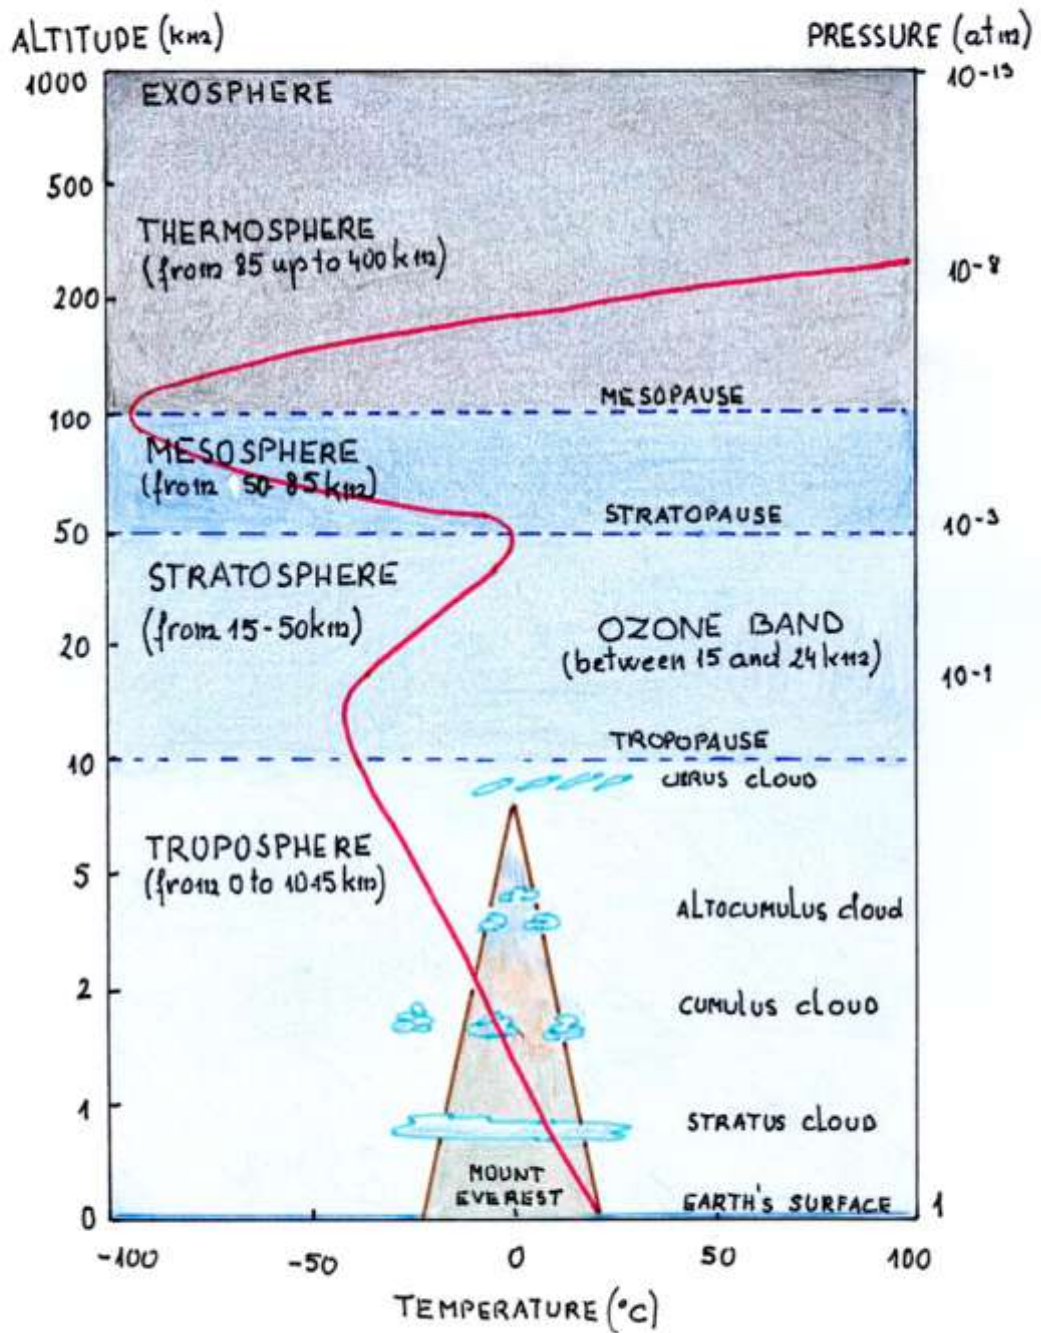 ALTITUDE (km)
PRESSURE (atm)
1000
EXOSPHERE
10-13
500
THERMOSPHERE
(from 85 up to 400 km)
10-8
200
MESOPAUSE
100
MESOSPHERE
(from 50-85 km)
STRATOPAUSE
50
10-3
STRATOSPHERE
(from 15-50km)
OZONE BAND
(between 15 and 24 km)
20
10-1
TROPOPAUSE
10
CIRRUS CLOUD
TROPOSPHERE
(from 0 to 1015 km)
5
ALTOCUMULUS cloud
2
CUMULUS CLOUD
1
STRATUS CLOUD
MOUNT
EVEREST
EARTH'S SURFACE
0
1
-100 -50 0 50 100
TEMPERATURE (°C)